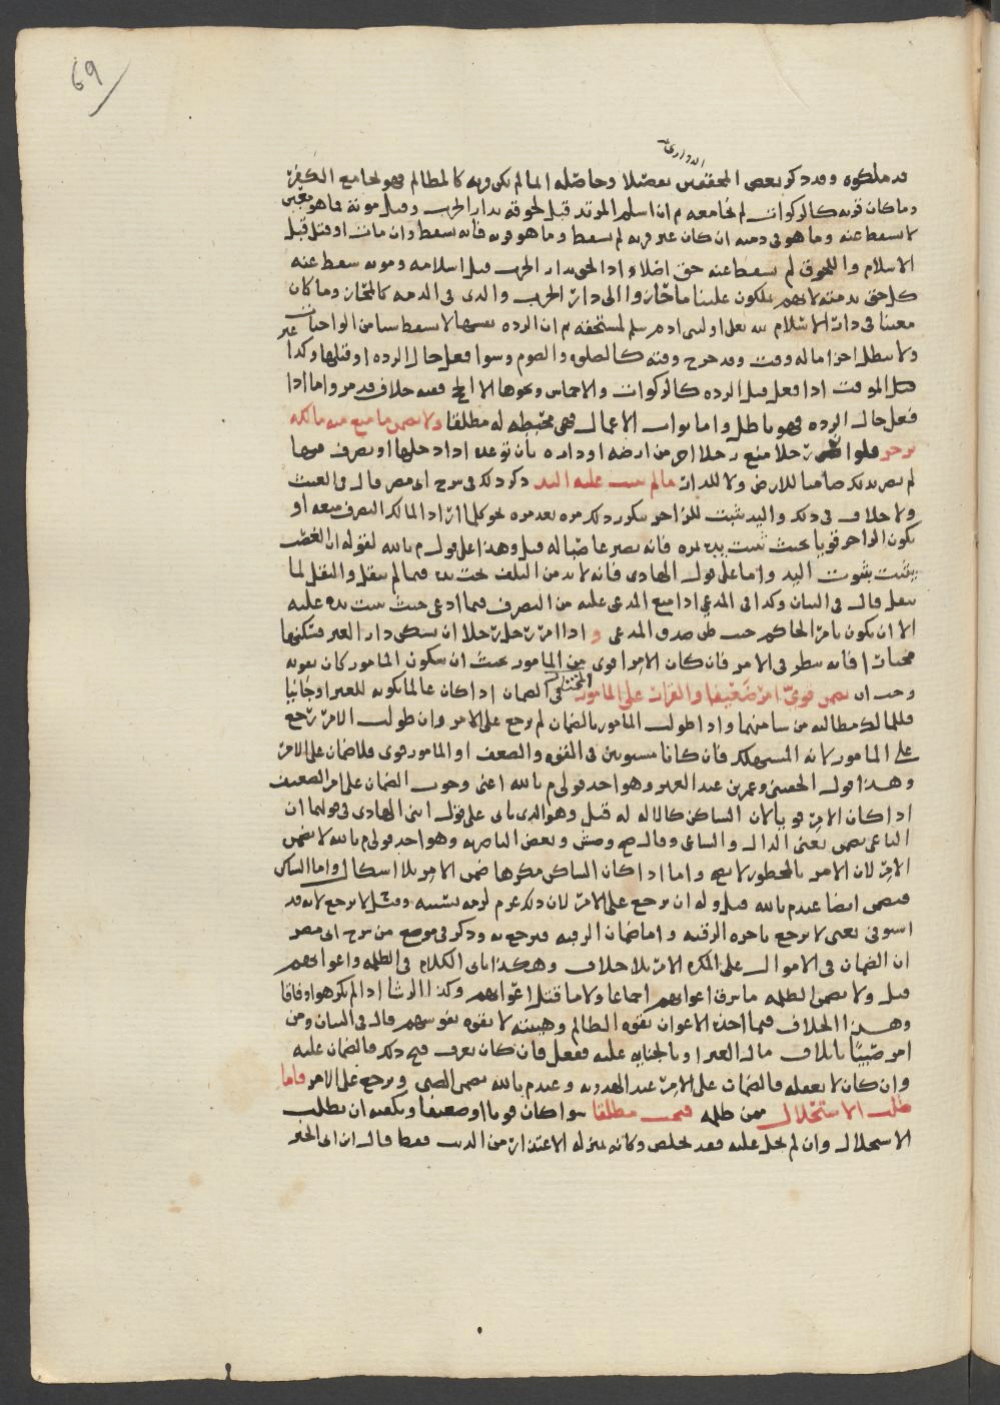 69
الدواري
قد ملكوه وقد ذكر بعض المحققين تفصيلا وحاصله اما ما لم يكن قربه كالمظالم فهو يجامع الكفر
وما كان قربه كالزكوات لم يجامعه ثم ان اسلم المرتد قبل لحوقه بدار الحرب وقبل موته فما هو
لا يسقط عنه وما هو في ذمته ان كان غير قربه لم يسقط وما هو قربه فانه يسقط وان مات او قتل قبل
الاسلام واللحوق لم يسقط عنه حق اصلا واذا لحق بدار الحرب قبل اسلامه وموته سقط عنه
كل حق بذمته لانهم يملكون علينا ما حازوا الى دار الحرب والذي في الذمه كالمحاز وما كان
معينا في دار الاسلام لله تعلى او لبني ادم سلم لمستحقه ثم ان الرده نفسها لا تسقط شيا من الواجبات
ولا تبطل اجزا ما له وقت وقد خرج وقته كالصلوه والصوم وسوا فعل حال الرده او قبلها وكذا
غير الموقت اذا فعل قبل الرده كالزكوات والاخماس ونحوها الا الحج ففيه خلاف قد مر واما اذا
فعل حال الرده فهو باطل واما ثواب الاعمال فهي محبطه له مطلقا ولا يضمن ما منع منه مالكه
بزجر فلو ان رجلا منع رجلا اخر من ارضه او داره بان توعده اذا دخلها او تصرف فيها
لم يصر بذلك ضامنا للارض ولا للدار ما لم تثبت عليه اليد ذكر ذلك في شرح ابي مضر قال في الغيث
ولا خلاف في ذلك واليد تثبت للزاجر بتكرر ذلك مره بعد مره نحو كلما اراد المالك التصرف منعه او
يكون الزاجر قويا بحيث تثبت يده فانه يصير غاصبا له قيل وهذا على قول م بالله لقوله ان الغصب
يثبت بثبوت اليد واما على قول الهادي فانه لا بد من التلف تحت يده فيما لم ينقل والنقل لما
ينقل قال في البيان وكذا في المدعي اذا منع المدعى عليه من التصرف فيما ادعى حيث ثبت يده عليه
الا ان يكون بامر الحاكم حيث ظن صدق المدعي و اذا امر رجل رجلا ان يسكن دار الغير فسكنها
مختارا فانه ينظر في الامر فان كان الامر اقوى من المامور بحيث ان يكون المامور كان بقوته
وجب ان يضمن قوي امر ضعيفا والقرار على المامور الضمان اذا كان عالما بكونه للغير او جانيا
فللمالك مطالبه من شا منهما واذا طولب المامور بالضمان لم يرجع على الامر وان طولب الامر رجع
على المامور لانه المستهلك فان كانا مستويين في القوه والضعف او المامور اقوى فلا ضمان على الامر
وهذا قول الحقيني وعمر بن عبد العزيز وهو احد قولي م بالله اعني وجوب الضمان على امر الضعيف
اذا كان الامر قويا لان الساكن كالاله له قيل وهو الذي ياتي على قول ابني الهادي في قولهما ان
الباغي يضمن يعني الدال والساعي وقال ح وش وبعض الناصريه وهو احد قولي م بالله لا يضمن
الامر لان الامر بالمحظور لا يصح واما اذا كان الساكن مكرها ضمن الامر بلا اشكال واما الساكن
فيضمن ايضا عند م بالله قيل وله ان يرجع على الامر لان ذلك غرم لزمه بسببه وقيل لا يرجع لانه قد
استوفى يعني لا يرجع باجره الرقبه واما ضمان الرقبه فيرجع به وذكر في موضع من شرح ابي مضر
ان الضمان في الاموال على المكره الامر بلا خلاف وهكذا ياتي الكلام في الظلمه واعوانهم
قيل ولا يضمن الظلمه ما سرق اعوانهم اجماعا ولا ما قتل اعوانهم وكذا الرشا اذا لم يكرهوا وفاقا
وهذا الخلاف فيما اخذه الاعوان بقوه الظالم وهيبته لا بقوه نفوسهم قال في البيان ومن
امر صبيا باتلاف مال الغير او بالجنايه عليه ففعل فان كان يعرف قبح ذلك فالضمان عليه
وان كان لا يعقله فالضمان على الامر عند الهدويه وعند م بالله يضمن الصبي ويرجع على الامر فاما
طلب الاستحلال ممن ظلمه فيجب مطلقا سوا كان قويا او ضعيفا ويكفيه ان يطلب
الاستحلال وان لم يحل عليه فقد تخلص وكانه بمنزله الاعتذار من الذنب فقط قال ابن ابي الخير